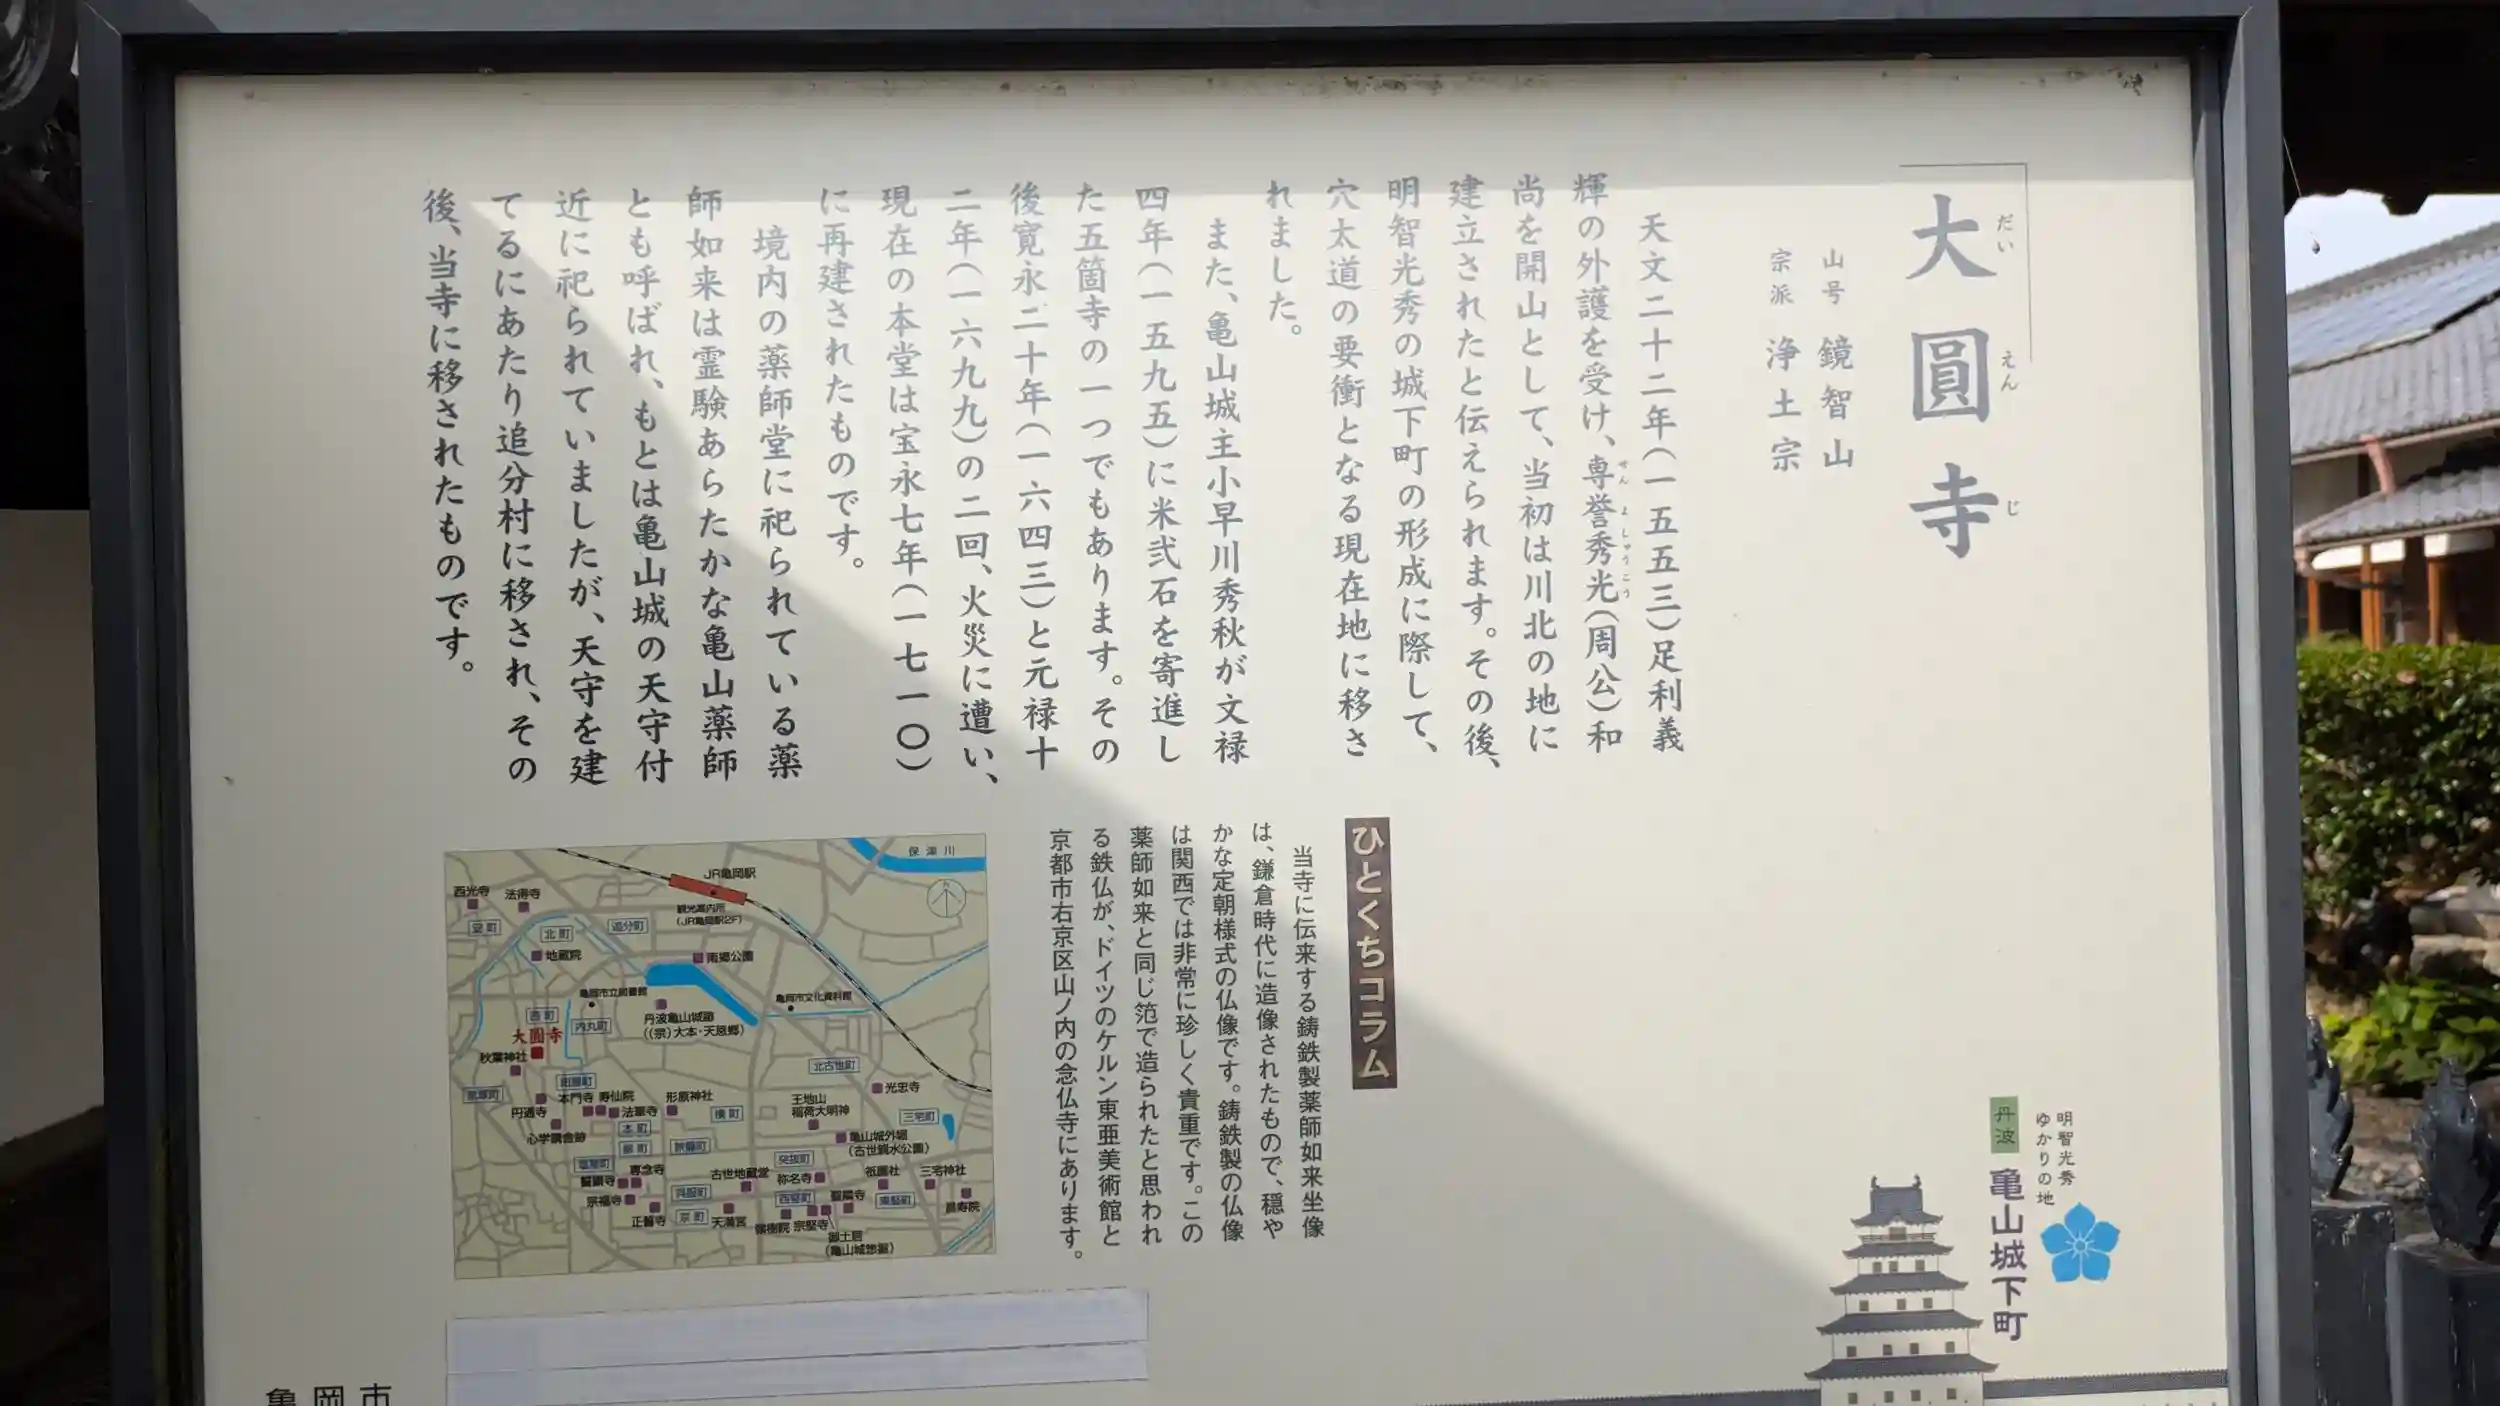 大圓寺
だいえんじ
山号 鏡智山
宗派 浄土宗
天文二十二年(一五五三)足利義
輝の外護を受け、専誉秀光(周公)和
せんよしゅうこう
尚を開山として、当初は川北の地に
建立されたと伝えられます。その後、
明智光秀の城下町の形成に際して、
穴太道の要衝となる現在地に移さ
れました。
また、亀山城主小早川秀秋が文禄
四年(一五九五)に米弐石を寄進し
た五箇寺の一つでもあります。その
後寛永二十年(一六四三)と元禄十
二年(一六九九)の二回、火災に遭い、
現在の本堂は宝永七年(一七一〇)
に再建されたものです。
境内の薬師堂に祀られている薬
師如来は霊験あらたかな亀山薬師
とも呼ばれ、もとは亀山城の天守付
近に祀られていましたが、天守を建
てるにあたり追分村に移され、その
後、当寺に移されたものです。
ひとくちコラム
当寺に伝来する鋳鉄製薬師如来坐像
は、鎌倉時代に造像されたもので、穏や
かな定朝様式の仏像です。鋳鉄製の仏像
は関西では非常に珍しく貴重です。この
薬師如来と同じ笵で造られたと思われ
る鉄仏が、ドイツのケルン東亜美術館と
京都市右京区山ノ内の念仏寺にあります。
保津川
JR亀岡駅
観光案内所
(JR亀岡駅2F)
西光寺
法得寺
北町
追分町
地蔵院
南郷公園
亀岡市立図書館
亀岡市文化資料館
丹波亀山城跡
((宗)大本・天恩郷)
西町
内丸町
大圓寺
秋葉神社
北古世町
光忠寺
円通寺
本門寺
寿仙院
法華寺
形原神社
横町
王地山
稲荷大明神
三宅町
心学講舎跡
本町
亀山城外堀
(古世親水公園)
旅籠町
塩屋町
専念寺
誓願寺
古世地蔵堂
突抜町
称名寺
祇園社
三宅神社
宗福寺
呉服町
西竪町
聖隣寺
東竪町
正誓寺
京町
天満宮
嶺樹院
宗堅寺
御土居
(亀山城惣堀)
明智光秀
ゆかりの地
丹波
亀山城下町
亀岡市